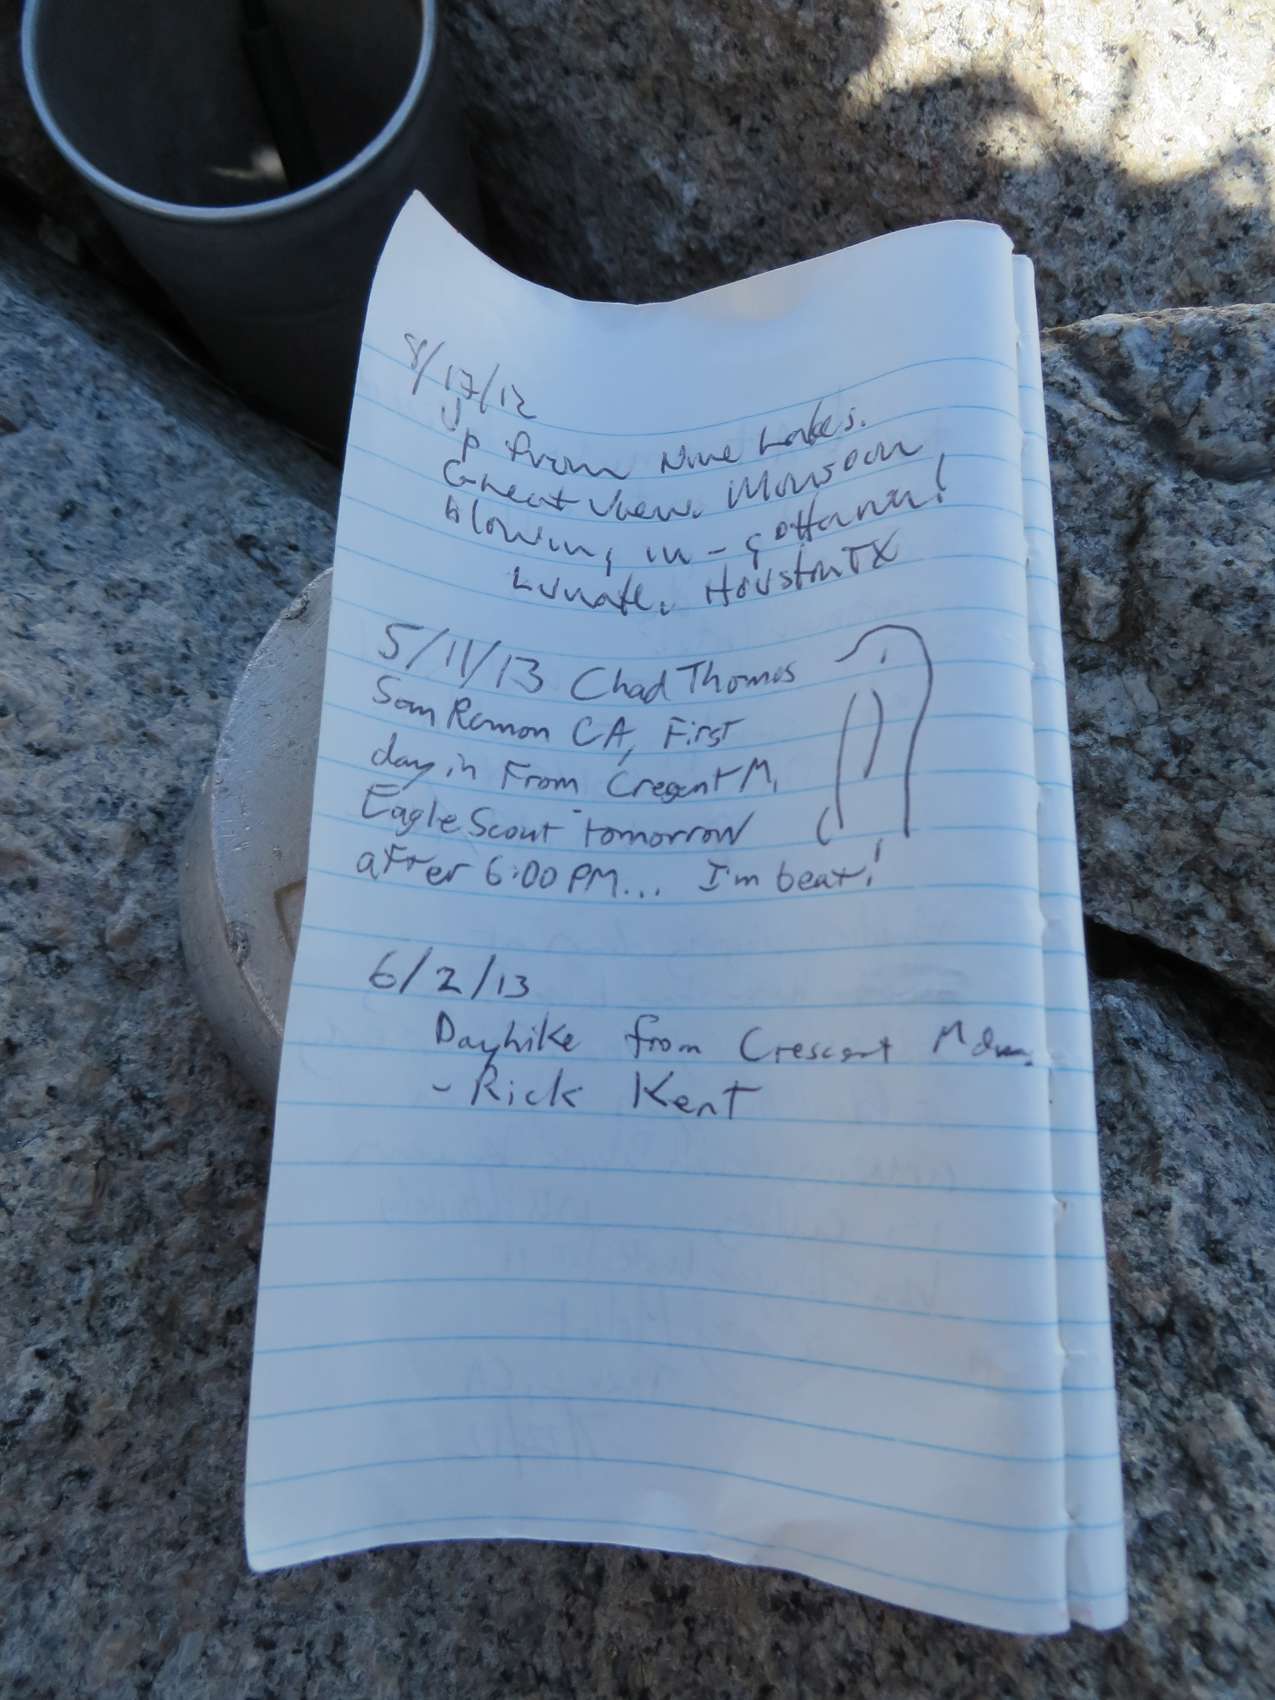 8/17/12
Up from Nine Lakes.
Great View. Monsoon
blowing in - gotta run!
Houston TX
5/11/13 Chad Thomas
San Ramon CA, First
day in From Cregent M.
Eagle Scout tomorrow
after 6:00 PM... I'm beat!
6/2/13
Dayhike from Crescent Mdw.
- Rick Kent